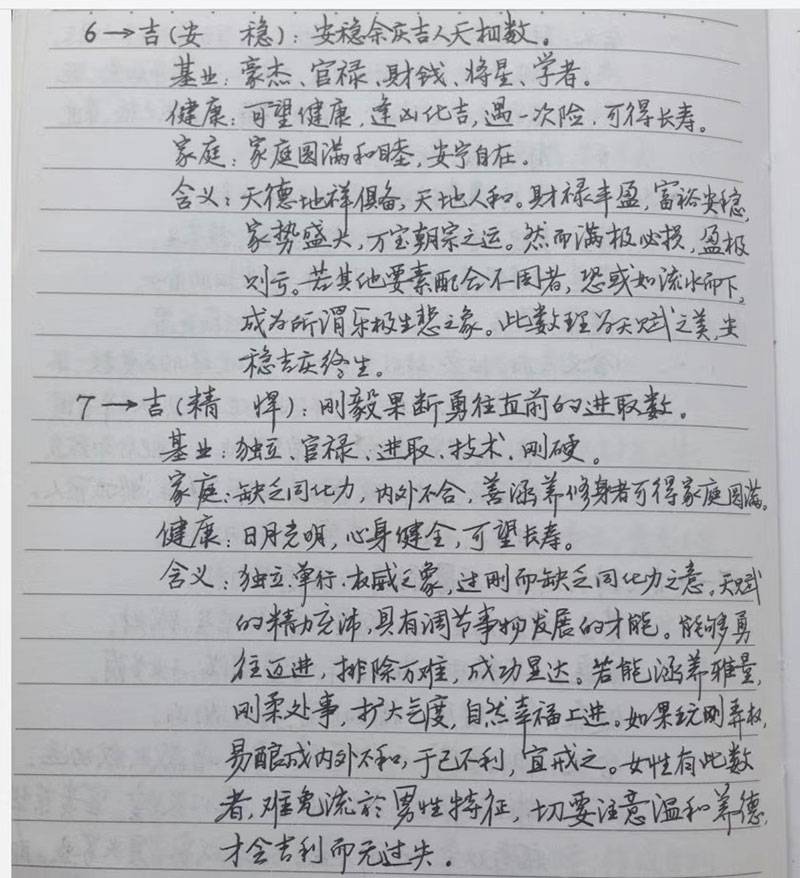 6→吉(安 稳)：安稳余庆吉人天相数。
基业：豪杰、官禄、财钱、将星、学者。
健康：可望健康，逢凶化吉，遇一次险，可得长寿。
家庭：家庭圆满和睦，安宁自在。
含义：天德地祥俱备，天地人和。财禄丰盈，富裕安稳，
家势盛大，万宝朝宗之运。然而满极必损，盈极
则亏。若其他要素配合不周者，恐或如流水而下，
成为所谓乐极生悲之象。此数理为天赋之美，安
稳吉庆终生。
7→吉(精 悍)：刚毅果断勇往直前的进取数。
基业：独立、官禄、进取、技术、刚硬。
家庭：缺乏同化力，内外不合，善涵养修身者可得家庭圆满。
健康：日月光明，心身健全，可望长寿。
含义：独立、单行、权威之象，过刚而缺乏同化力之意。天赋
的精力充沛，具有调节事物发展的才能。能够勇
往迈进，排除万难，成功显达。若能涵养雅量，
刚柔处事，扩大气度，自然幸福上进。如果玩刚弄权，
易酿成内外不和，于己不利，宜戒之。女性有此数
者，难免流於男性特征，切要注意温和养德，
才会吉利而无过失。